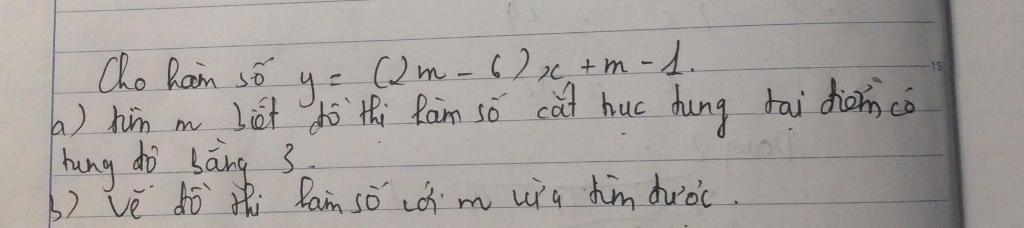 Cho hàm số y = (2m - 6)x + m - 1.
a) tìm m biết đồ thị hàm số cắt trục tung tại điểm có
tung độ bằng 3.
b) Vẽ đồ thị hàm số với m vừa tìm được.